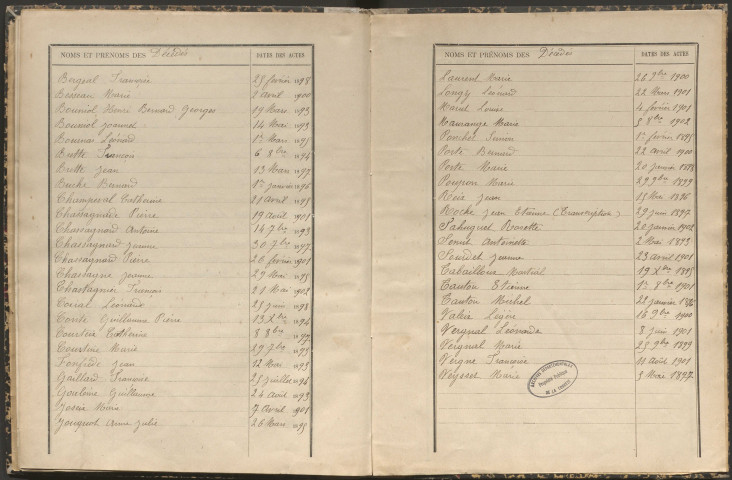 NOMS ET PRÉNOMS DES Décédés DATES DES ACTES
Bergeal Françoise 25 février 1898
Besseau Marie 8 avril 1900
Bouniol Henri Bernard Georges 19 Mars 1893
Bouniol Jeanne 14 Mai 1893
Léonard
Brette François 6 8bre 1894
Brette Jean 13 Mars 1897
Buche Bernard janvier 1896
Champeval Catherine 21 avril
Chassagnade Pierre 19 avril 1901
Chassagnard Antoine 14 7bre 1893
Chassagnard Jeanne 30 7bre 1897
Chassagnard Pierre 26 février 1901
Chassagne Jeanne 29 Mai
Chastagner François 21 Mai 1902
Coiral Léonard 25 juin 1898
Conte Guillaume Pierre 13 Xbre 1894
Courtine Catherine 3 8bre
Courtine Marie 29 7bre
Fonfrède Jean 12 Mai 1893
Gaillard Françoise 25 juillet 1894
Goulaine Guillaume 24 août 1893
Jarrie Marie 7 avril 1901
Jouquet Anne Julie 26 Mars
NOMS ET PRÉNOMS DES Décédés DATES DES ACTES
Laurent Marie 26 9bre 1900
Longy Léonard 22 Mars 1901
Marut Louise 4 février 1901
Maurange Marie 5 8bre 1902
Ponchet 1er février 1895
Porte Bernard 22 avril 1900
Porte Marie 20 janvier
Pouyson Marie 29 9bre 1899
Jean 15 Mai 1896
Roche Jean Etienne (Transcription) 29 juin 1897
Sahuguet Rosette 20 janvier 1902
Senut Antoinette 2 Mai 1893
Soudet Jeanne 23 avril 1901
Tabailloux Martial 19 Xbre 1895
Tauton Etienne 1er 8bre 1901
Tauton Michel 28 janvier
Valeix Légère 16 9bre 1900
Vergnal Léonarde 8 juin 1901
Vergnal Marie 25 9bre 1899
Vergne Françoise 11 août 1901
Veysset Marie 3 Mai 1897
ARCHIVES DÉPARTEMENTALES
Propriété Publique
DE LA CORRÈZE